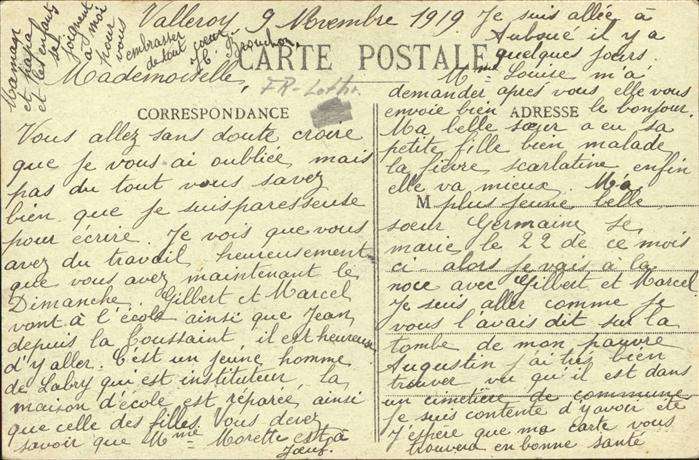 Valleroy 9 Novembre 1919
CARTE POSTALE
Mademoiselle,
FR-Lothr.
CORRESPONDANCE
Vous allez sans doute croire
que je vous ai oubliée mais
pas du tout vous savez
bien que je suis paresseuse
pour écrire. Je vois que vous
avez du travail heureusement
que vous avez maintenant le
Dimanche. Gilbert et Marcel
vont à l'école ainsi que Jean
depuis la Toussaint il est heureux
d'y aller. C'est un jeune homme
de Labry qui est instituteur, la
maison d'école est réparée ainsi
que celle des filles. Vous devez
savoir que Mme Morette est à
Joeuf.
Je suis allée à
Auboué il y a
quelques jours.
Mme Louise m'a
demander apres vous elle vous
envoie bien le bonjour.
ADRESSE
Ma belle sœur a eu sa
petite fille bien malade
la fièvre scarlatine enfin
elle va mieux. Ma
M
plus jeune belle
sœur Germaine se
marie le 22 de ce mois
ci alors je vais à la
noce avec Gilbert et Marcel
Je suis aller comme je
vous l'avais dit sur la
tombe de mon pauvre
Augustin j'ai très bien
trouver, vu qu'il est dans
un cimetière de commune
Je suis contente d'y avoir été
J'espère que ma carte vous
trouvera en bonne santé
Maman
et papa
et les enfants
se
joignent
à moi
pour
vous
embrasser
de tout
cœur